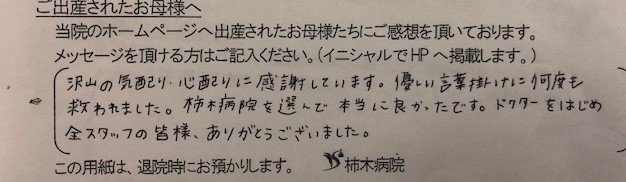 ご出産されたお母様へ
当院のホームページへ出産されたお母様たちにご感想を頂いております。
メッセージを頂ける方はご記入ください。(イニシャルでHPへ掲載します。)
沢山の気配り・心配りに感謝しています。優しい言葉掛けに何度も
救われました。柿木病院を選んで本当に良かったです。ドクターをはじめ
全スタッフの皆様、ありがとうございました。
この用紙は、退院時にお預かりします。 柿木病院